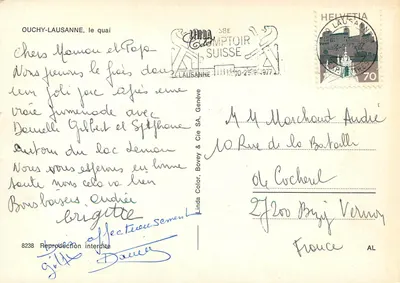 OUCHY-LAUSANNE, le quai
Chers Maman et Papa
Nous prenons le frais dans
un joli parc après une
vraie promenade avec
Danielle Gilbert et Stéphane
autour du lac Leman
Nous vous espérons en bonne
santé nous cela va bien
Bons baisers andrée
brigitte
affectueusement
Danielle
8238 Reproduction interdite
Linda Color, Bovey & Cie SA, Genève
COMPTOIR
SUISSE
LAUSANNE
1977
HELVETIA
LAUSANNE
70
M M Marchand André
10 Rue de la Bataille
de Cocherel
27200 Bizy Vernon
France
AL